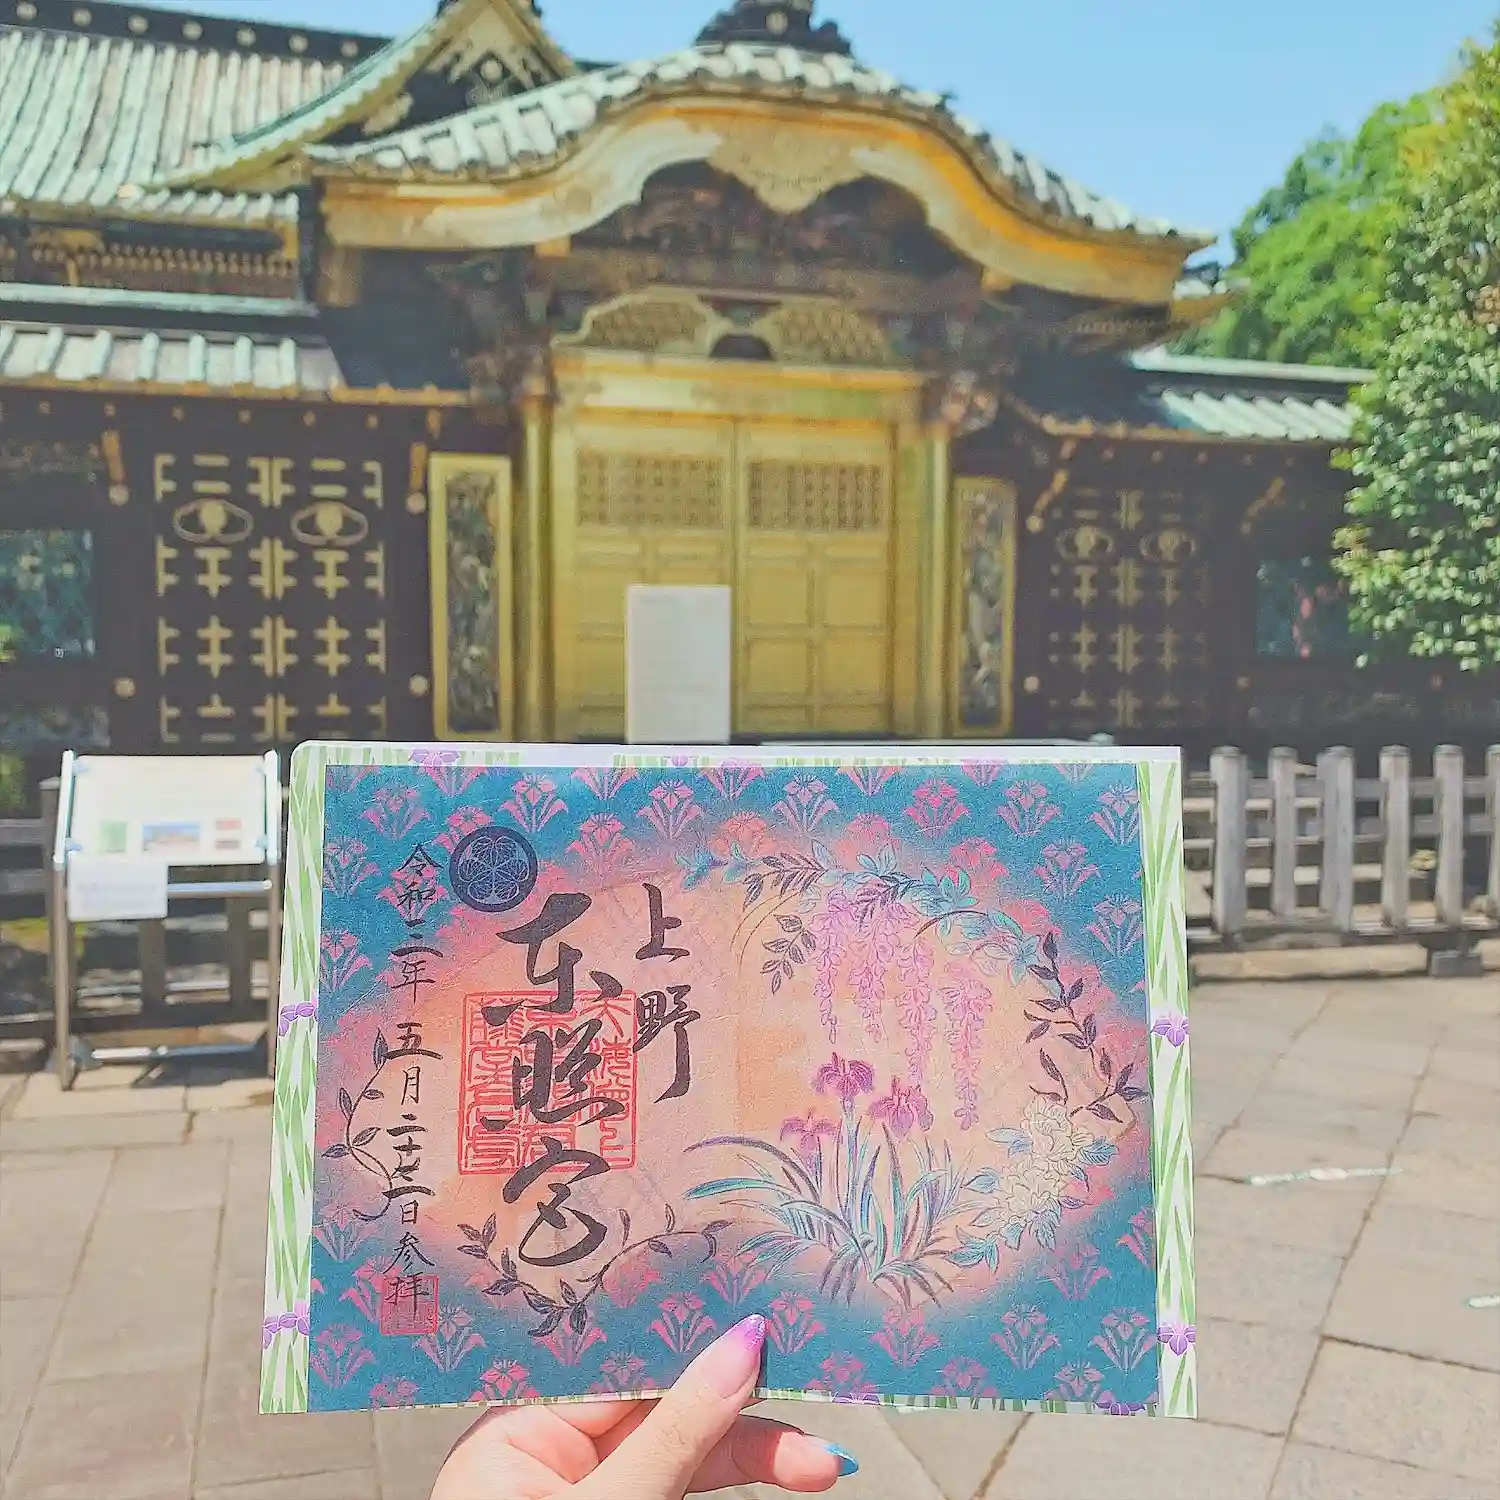 上野
東照宮
令和二年 五月二十二日参拝